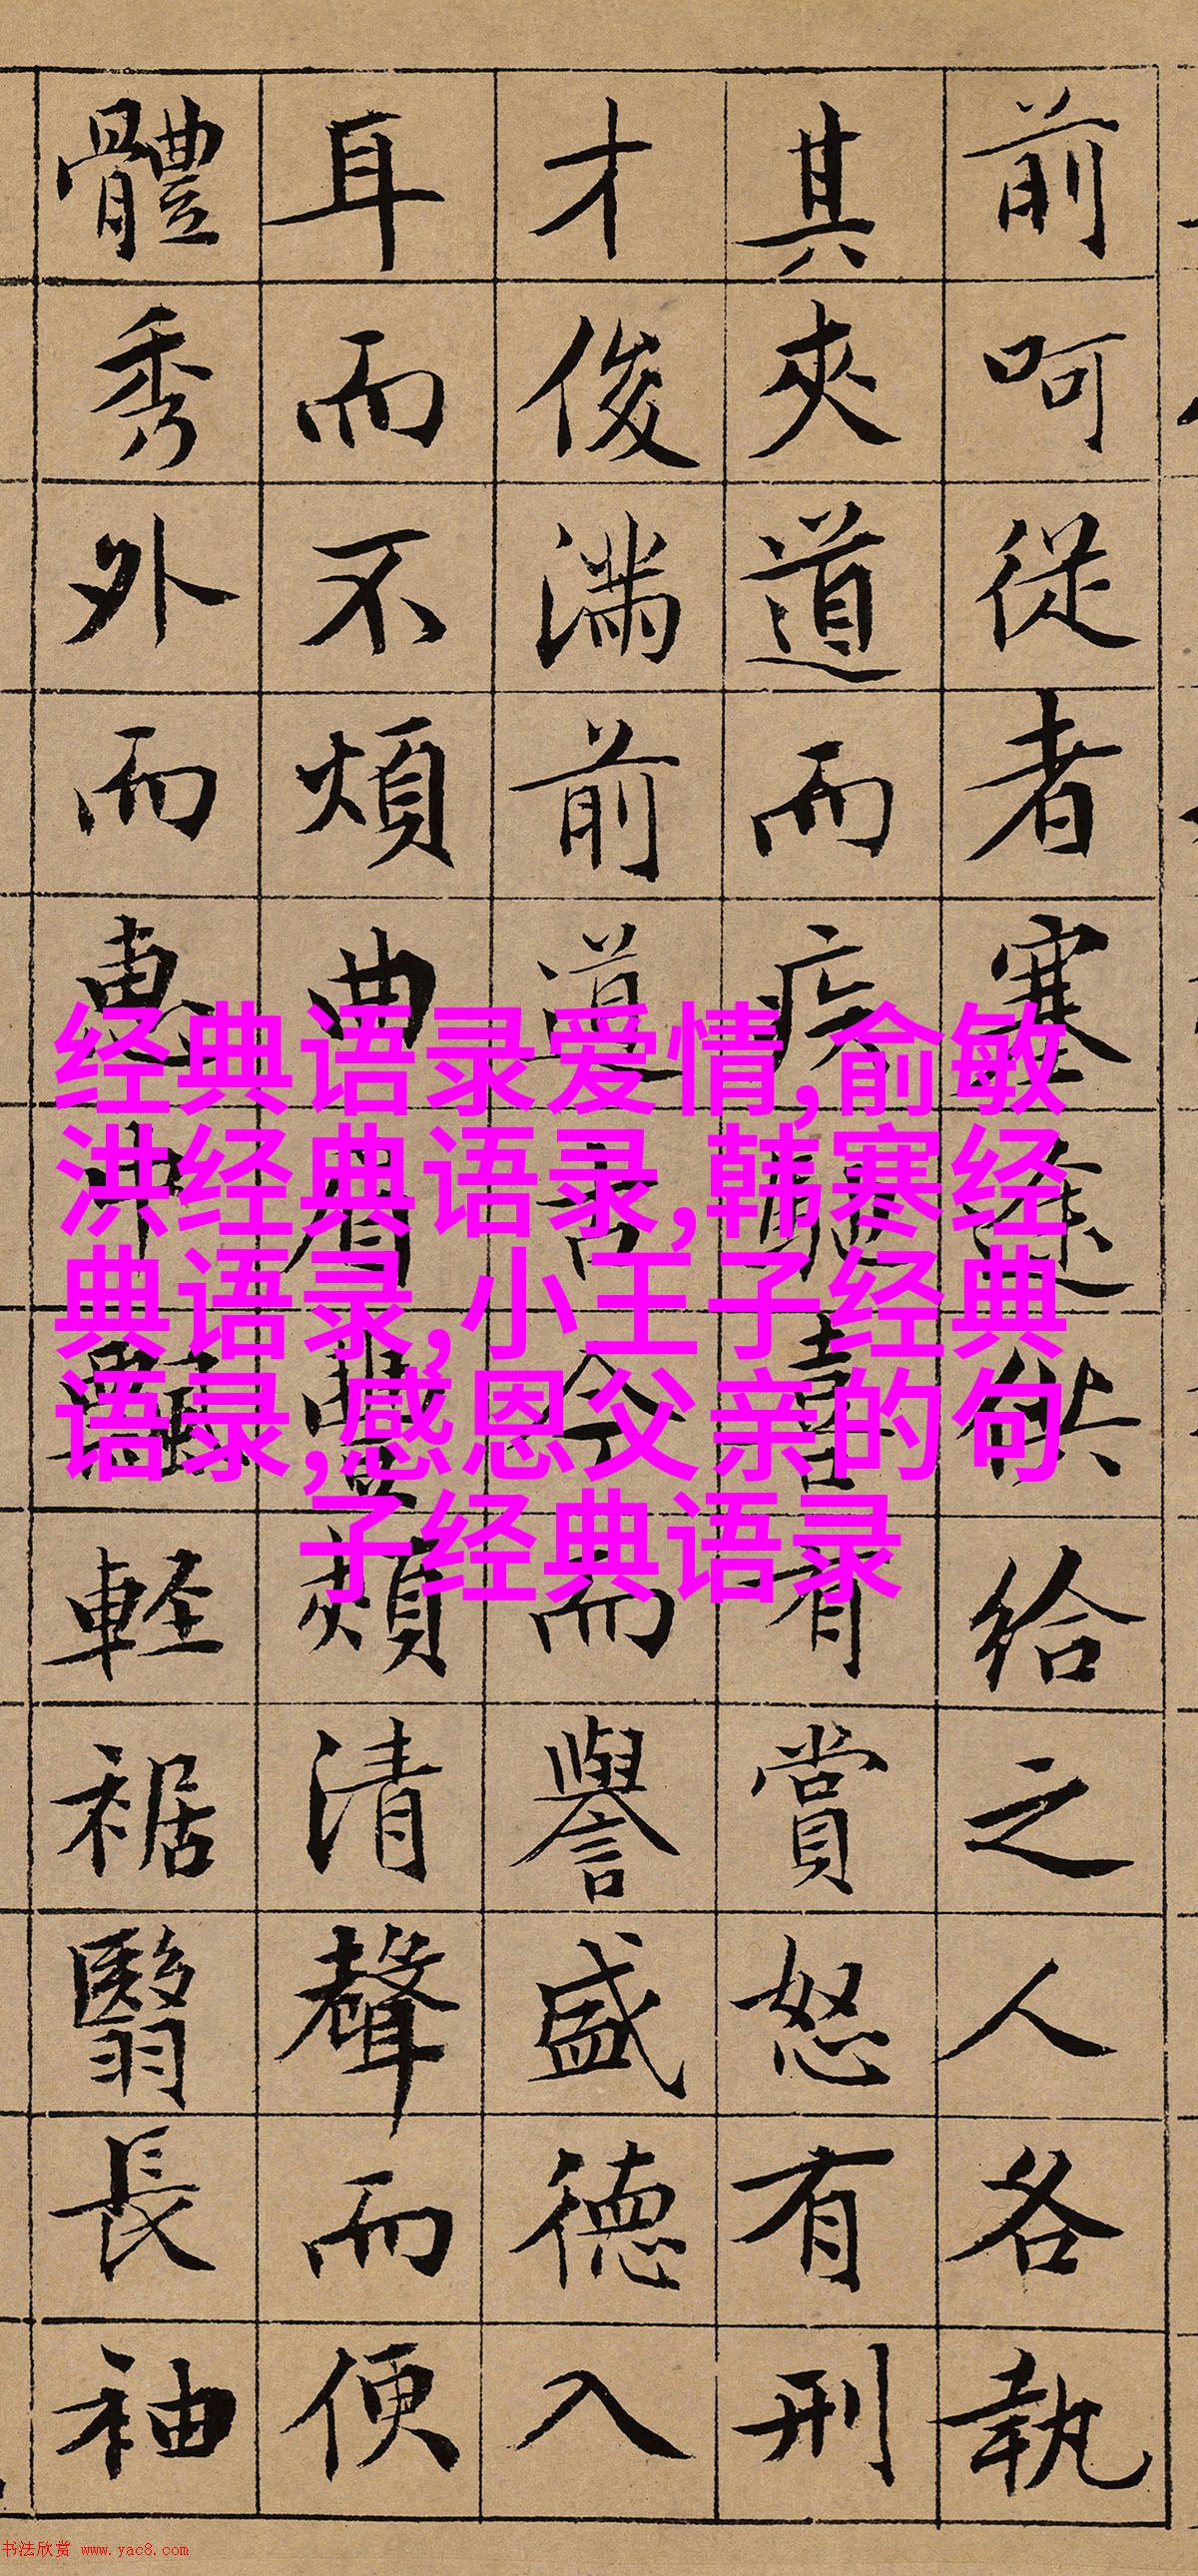 前呵從者塞途供給之人各執
其夾道而疾馳喜有賞怒有刑
才俊滿前道古今而譽盛德入
耳而不煩曲眉豐頰清聲而便
體秀外而惠中飄輕裾翳長袖
经典语录爱情,俞敏
洪经典语录,韩寒经
典语录,小王子经典
语录,感恩父亲的句
子经典语录
书法欣赏 www.yac8.com